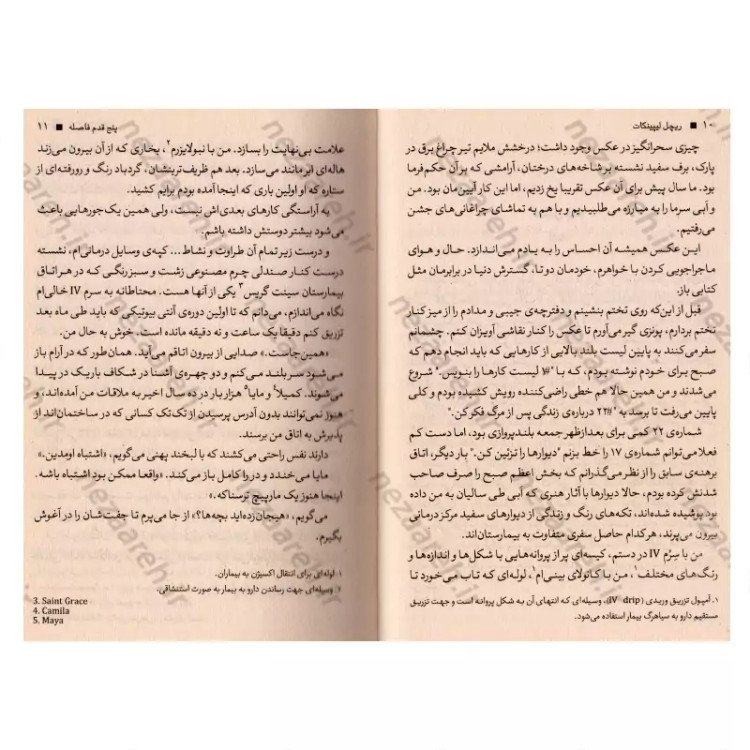 ۱۰ ■ ریچل لیپینکات
چیزی سحرانگیز در عکس وجود داشت؛ درخشش ملایم تیر چراغ برق در
پارک، برف سفید نشسته بر شاخه‌های درختان، آرامشی که بر آن حکم‌فرما
بود. ما سال پیش برای آن عکس تقریبا یخ زدیم، اما این کار آیین‌مان بود. من
و اَبی سرما را به مبارزه می‌طلبیدیم و با هم به تماشای چراغانی‌های جشن
می‌رفتیم.
این عکس همیشه آن احساس را به یادم می‌اندازد. حال و هوای
ماجراجویی کردن با خواهرم، خودمان دوتا، گسترش دنیا در برابرمان مثل
کتابی باز.
قبل از این‌که روی تختم بنشینم و دفترچه‌ی جیبی و مدادم را از میز کنار
تختم بردارم، پونزی گیر می‌آورم تا عکس را کنار نقاشی آویزان کنم. چشمانم
سفر می‌کنند به پایین لیست بلند بالایی از کارهایی که باید انجام دهم که
صبح برای خودم نوشته بودم، که با "#۱ لیست کارها را بنویس." شروع
می‌شدند و من همین حالا هم خطی راضی‌کننده رویش کشیده بودم و کلی
پایین می‌رفت تا برسد به "#۲۲ درباره‌ی زندگی پس از مرگ فکر کن."
شماره‌ی ۲۲ کمی برای بعدازظهر جمعه بلندپروازی بود، اما دست کم
فعلا می‌توانم شماره‌ی ۱۷ را خط بزنم "دیوارها را تزئین کن." بار دیگر، اتاق
برهنه‌ی سابق را از نظر می‌گذرانم که بخش اعظم صبح را صرف صاحب
شدنش کرده بودم، حالا دیوارها با آثار هنری که اَبی طی سالیان به من داده
بود پوشیده شده‌اند، تکه‌های رنگ و زندگی از دیوارهای سفید مرکز درمانی
بیرون می‌پرند، هرکدام حاصل سفری متفاوت به بیمارستان‌اند.
من با سِرُم IV در دستم، کیسه‌ای پر از پروانه‌هایی با شکل‌ها و اندازه‌ها و
رنگ‌های مختلف۱، من با کانولای بینی‌ام۱، لوله‌ای که تاب می‌خورد تا
۱. آمپول تزریق وریدی (IV drip)، وسیله‌ای که انتهای آن به شکل پروانه است و جهت تزریق
مستقیم دارو به سیاهرگ بیمار استفاده می‌شود.
پنج قدم فاصله ■ ۱۱
علامت بی‌نهایت را بسازد. من با نبولایزرم۲، بخاری که از آن بیرون می‌زند
هاله‌ای ابرمانند می‌سازد. بعد هم ظریف‌ترینشان، گردباد رنگ و رورفته‌ای از
ستاره که او اولین باری که اینجا آمده بودم برایم کشید.
به آراستگی کارهای بعدی‌اش نیست، ولی همین یک‌جورهایی باعث
می‌شود بیشتر دوستش داشته باشم.
و درست زیر تمام آن طراوت و نشاط... کپه‌ی وسایل درمانی‌ام، نشسته
درست کنار صندلی چرم مصنوعی زشت و سبزرنگی که در هر اتاق
بیمارستان سینت گریس۳ یکی از آنها هست. محتاطانه به سرم IV خالی‌ام
نگاه می‌اندازم، می‌دانم که تا اولین دوره‌ی آنتی بیوتیکی که باید طی ماه بعد
تزریق کنم دقیقا یک ساعت و نه دقیقه مانده است. خوش به حال من.
«همین‌جاست.» صدایی از بیرون اتاقم می‌آید. همان‌طور که در آرام باز
می‌شود سر بلند می‌کنم و دو چهره‌ی آشنا در شکاف باریک در پیدا
می‌شوند. کمیلا۴ و مایا۵ هزار بار در ده سال اخیر به ملاقات من آمده‌اند، و
هنوز نمی‌توانند بدون آدرس پرسیدن از تک‌تک کسانی که در ساختمان‌اند از
پذیرش به اتاق من برسند.
دارند نفس راحتی می‌کشند که با لبخند پهنی می‌گویم، «اشتباه اومدین.»
مایا می‌خندد و در را کامل باز می‌کند. «واقعا ممکن بود اشتباه باشه.
اینجا هنوز یک مارپیچ ترسناکه.»
می‌گویم، «هیجان‌زده‌اید بچه‌ها؟» از جا می‌پرم تا جفت‌شان را در آغوش
بگیرم.
۱. لوله‌ای برای انتقال اکسیژن به بیماران.
۲. وسیله‌ای جهت رساندن دارو به بیمار به صورت استنشاقی.
3. Saint Grace
4. Camila
5. Maya
nezaareh.ir